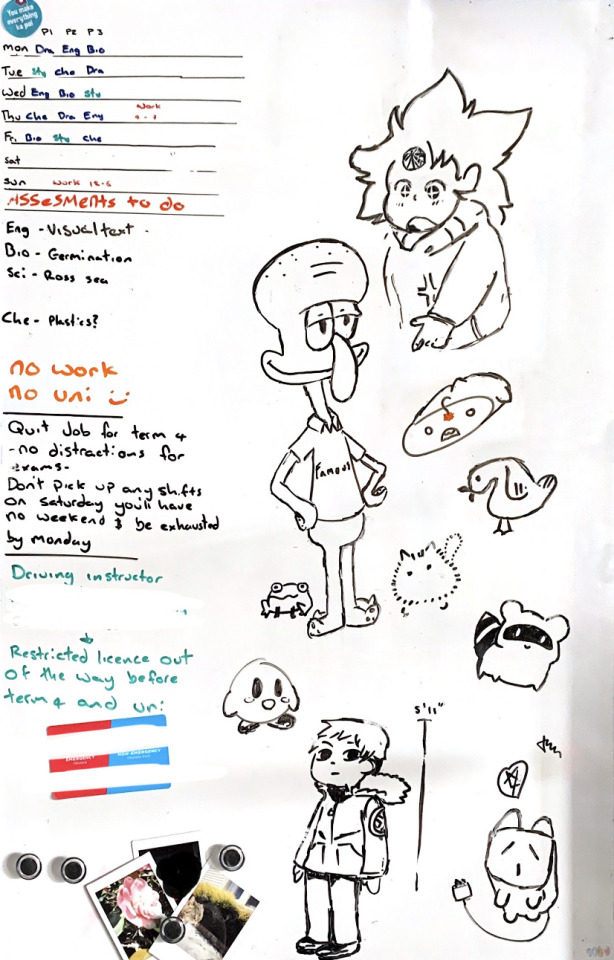 You make
everything
ka pai
P1 P2 P3
Mon Dra Eng Bio
Tue Stu Che Dra
Wed Eng Bio Stu
Thu Che Dra Eng Work
Fri Bio Stu Che
Sat
Sun Work 12-6
Assesments to do
Eng - Visual text -
Bio - Germination
Sci - Ross Sea
Che - Plastics?
no work
no uni
Quit Job for term 4
- no distractions for
exams-
Don't pick up any shifts
on Saturday you'll have
no weekend & be exhausted
by monday
Driving instructor
Restricted licence out
of the way before
term 4 and uni
EMERGENCY
NON EMERGENCY
Famous
5'11"